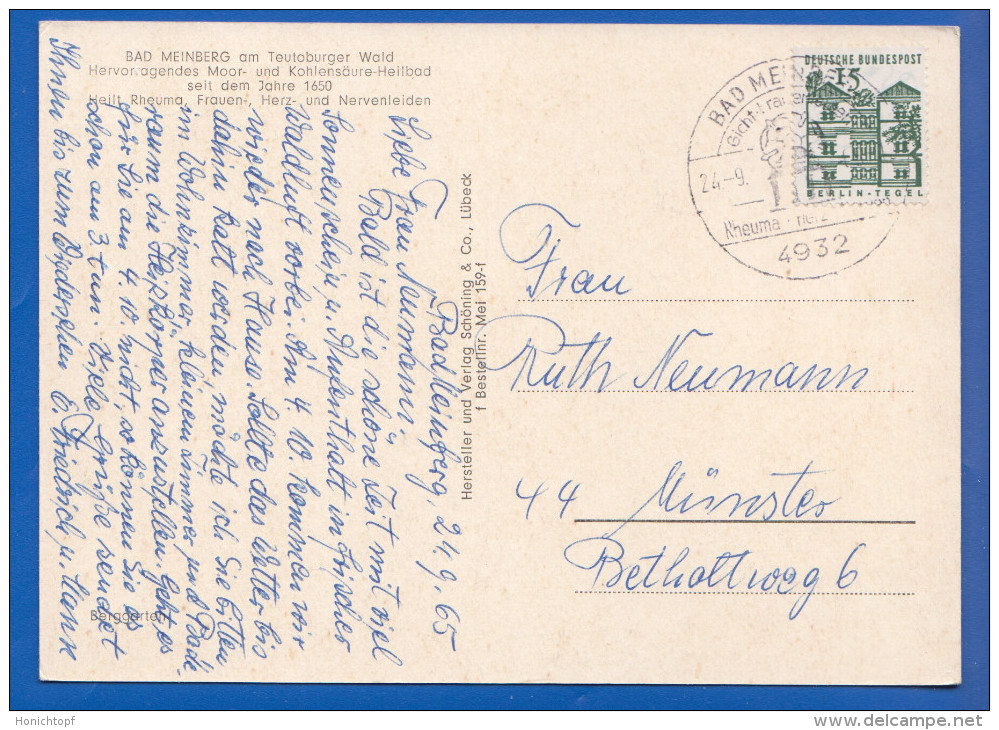 BAD MEINBERG am Teutoburger Wald
Hervorragendes Moor- und Kohlensäure-Heilbad
seit dem Jahre 1650
Heilt Rheuma, Frauen-, Herz- und Nervenleiden
Bad Meinberg, 24. 9. 65
Liebe Frau Neumann.
Bald ist die schöne Zeit mit viel
Sonnenschein u. Aufenthalt in frischer
Waldluft vorbei. Am 4. 10. kommen wir
wieder nach Hause. Sollte das Wetter bis
dahin kalt werden möchte ich Sie bitten
im Wohnzimmer, kleinem Zimmer, und Bade-
raum die Heizkörper anzustellen. Geht es
für Sie am 4. 10. nicht, so können Sie es
schon am 3. tun. Viele Grüße sendet
Ihnen bis zum Wiedersehen E. Friedrich, u. Mann
Berggarten
Hersteller und Verlag Schöning & Co., Lübeck
f Bestellnr. Mei 159-f
DEUTSCHE BUNDESPOST
15
BERLIN-TEGEL
BAD MEINBERG
24.-9.
Rheuma - Herz
4932
Frau
Ruth Neumann
44 Münster
Betholtweg 6
Honichtopf
www.delcampe.net